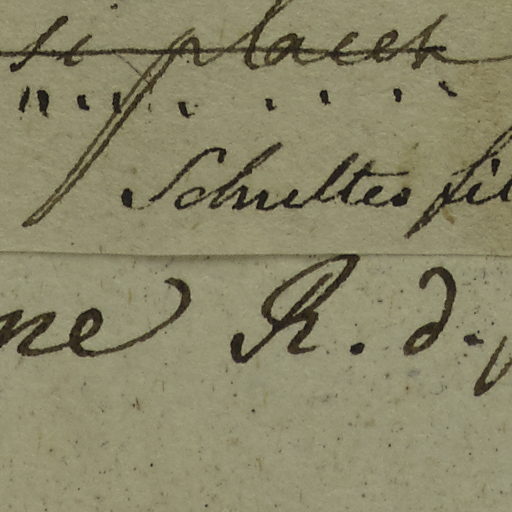 si placet
Schultes fil
ne R. d.